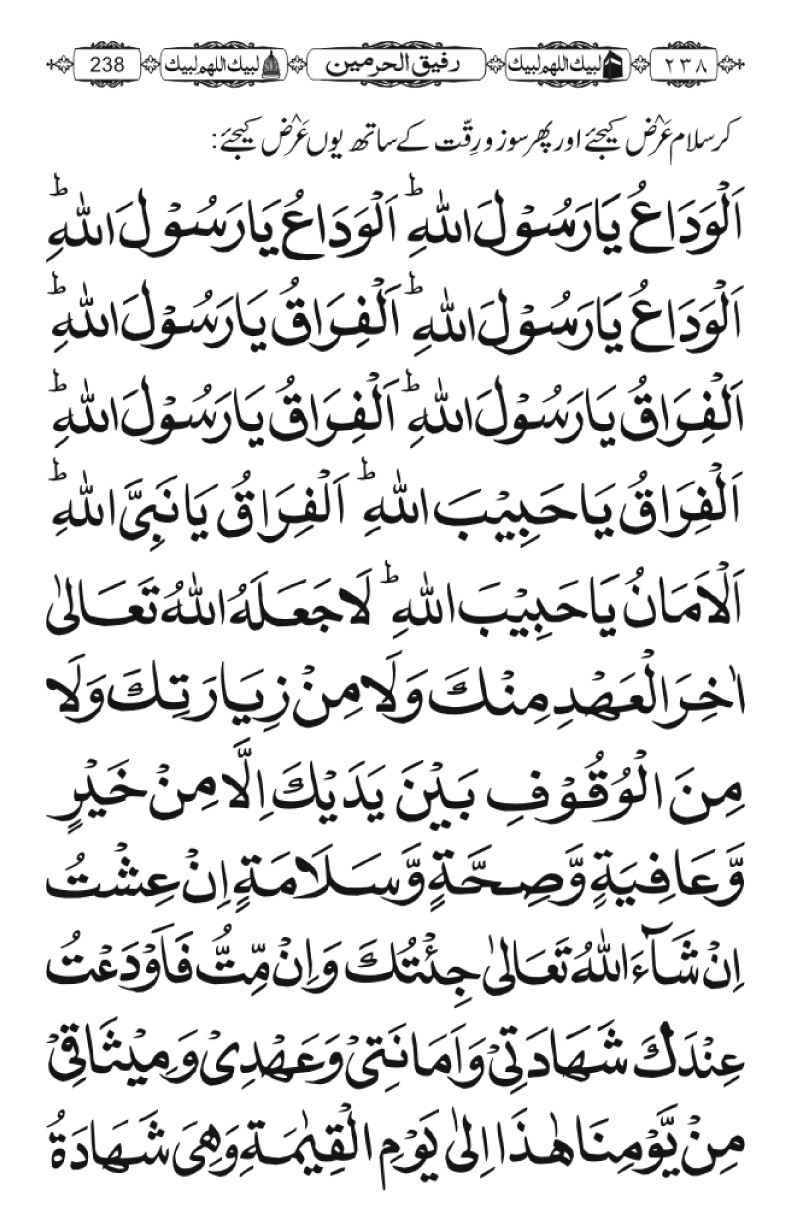 ٢٣٨ لبیك اللهم لبیك رفیق الحرمین لبیك اللهم لبیك 238
کر سلام عَرْض کیجئے اور پھر سوز و رِقّت کے ساتھ یوں عَرْض کیجئے:
اَلْوَدَاعُ یَارَسُوْلَ اللهِ ؕ اَلْوَدَاعُ یَارَسُوْلَ اللهِ ؕ
اَلْوَدَاعُ یَارَسُوْلَ اللهِ ؕ اَلْفِرَاقُ یَارَسُوْلَ اللهِ ؕ
اَلْفِرَاقُ یَارَسُوْلَ اللهِ ؕ اَلْفِرَاقُ یَارَسُوْلَ اللهِ ؕ
اَلْفِرَاقُ یَاحَبِیْبَ اللهِ ؕ اَلْفِرَاقُ یَانَبِیَّ اللهِ ؕ
اَلْاَمَانُ یَاحَبِیْبَ اللهِ ؕ لَاجَعَلَهُ اللهُ تَعَالٰی
اٰخِرَ الْعَهْدِ مِنْكَ وَلَا مِنْ زِیَارَتِكَ وَلَا
مِنَ الْوُقُوْفِ بَیْنَ یَدَیْكَ اِلَّا مِنْ خَیْرٍ
وَّعَافِیَةٍ وَّصِحَّةٍ وَّسَلَامَةٍ اِنْ عِشْتُ
اِنْ شَآءَ اللهُ تَعَالٰی جِئْتُكَ وَاِنْ مِّتُّ فَاَوْدَعْتُ
عِنْدَكَ شَهَادَتِیْ وَاَمَانَتِیْ وَعَهْدِیْ وَمِیْثَاقِیْ
مِنْ یَّوْمِنَا هٰذَا اِلٰی یَوْمِ الْقِیٰمَةِ وَهِیَ شَهَادَةُ